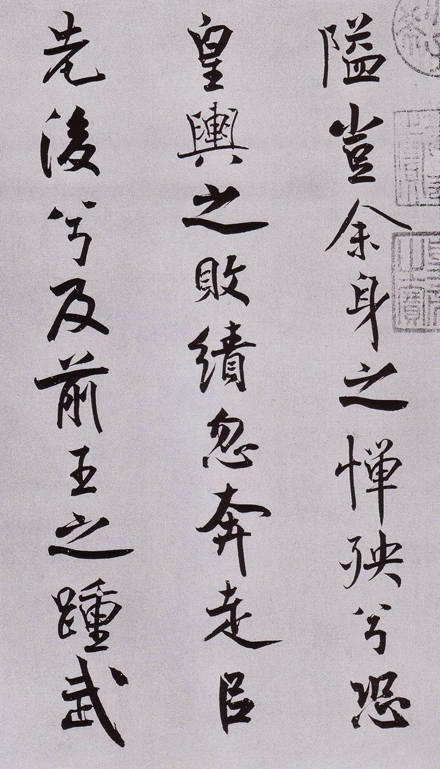 隘豈余身之憚殃兮恐
皇輿之敗績忽奔走㠯
先後兮及前王之踵武